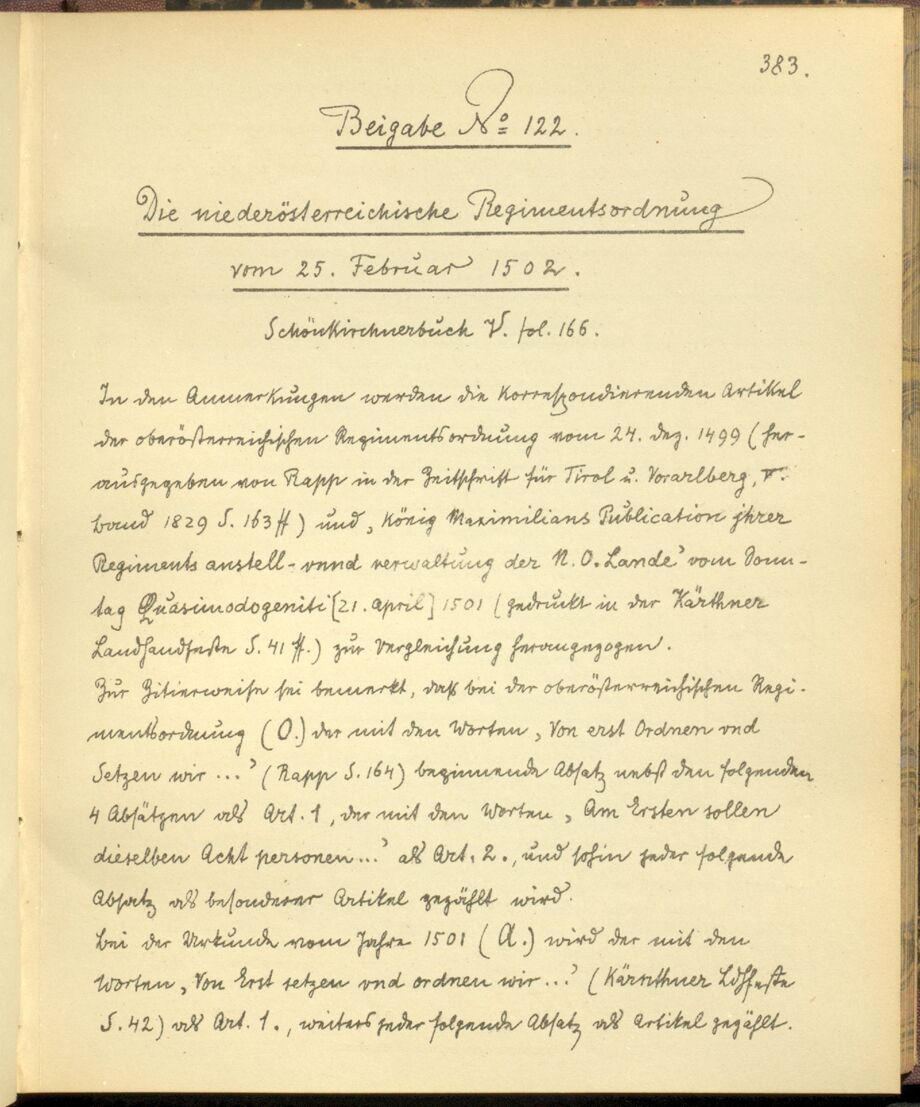 383.
Beigabe No 122.
Die niederösterreichische Regimentsordnung
vom 25. Februar 1502.
Schönkirchnerbuch V. fol. 166.
In den Anmerkungen werden die korrespondierenden Artikel
der oberösterreichischen Regimentsordnung vom 24. Dez. 1499 (her-
ausgegeben von Rapp in der Zeitschrift für Tirol u. Vorarlberg, V.
Band 1829 S. 163 ff) und „König Maximilians Publication jhrer
Regiments anstell- vnnd verwaltung der N. O. Lande" vom Sonn-
tag Quasimodogeniti [21. April] 1501 (gedruckt in der Kärthner
Landhandfeste S. 41 ff.) zur Vergleichung herangezogen.
Zur Zitierweise sei bemerkt, daß bei der oberösterreichischen Regi-
mentsordnung (O.) der mit den Worten „Von erst Ordnen vnd
Setzen wir ..." (Rapp S. 164) beginnende Absatz nebst den folgenden
4 Absätzen als Art. 1, der mit den Worten „Am Ersten sollen
dieselben Acht personen..." als Art. 2., und sohin jeder folgende
Absatz als besonderer Artikel gezählt wird.
Bei der Urkunde vom Jahre 1501 (A.) wird der mit den
Worten „Von Erst setzen vnd ordnen wir ..." (Kärnthner Ldhfeste
S. 42) als Art. 1., weiters jeder folgende Absatz als Artikel gezählt.